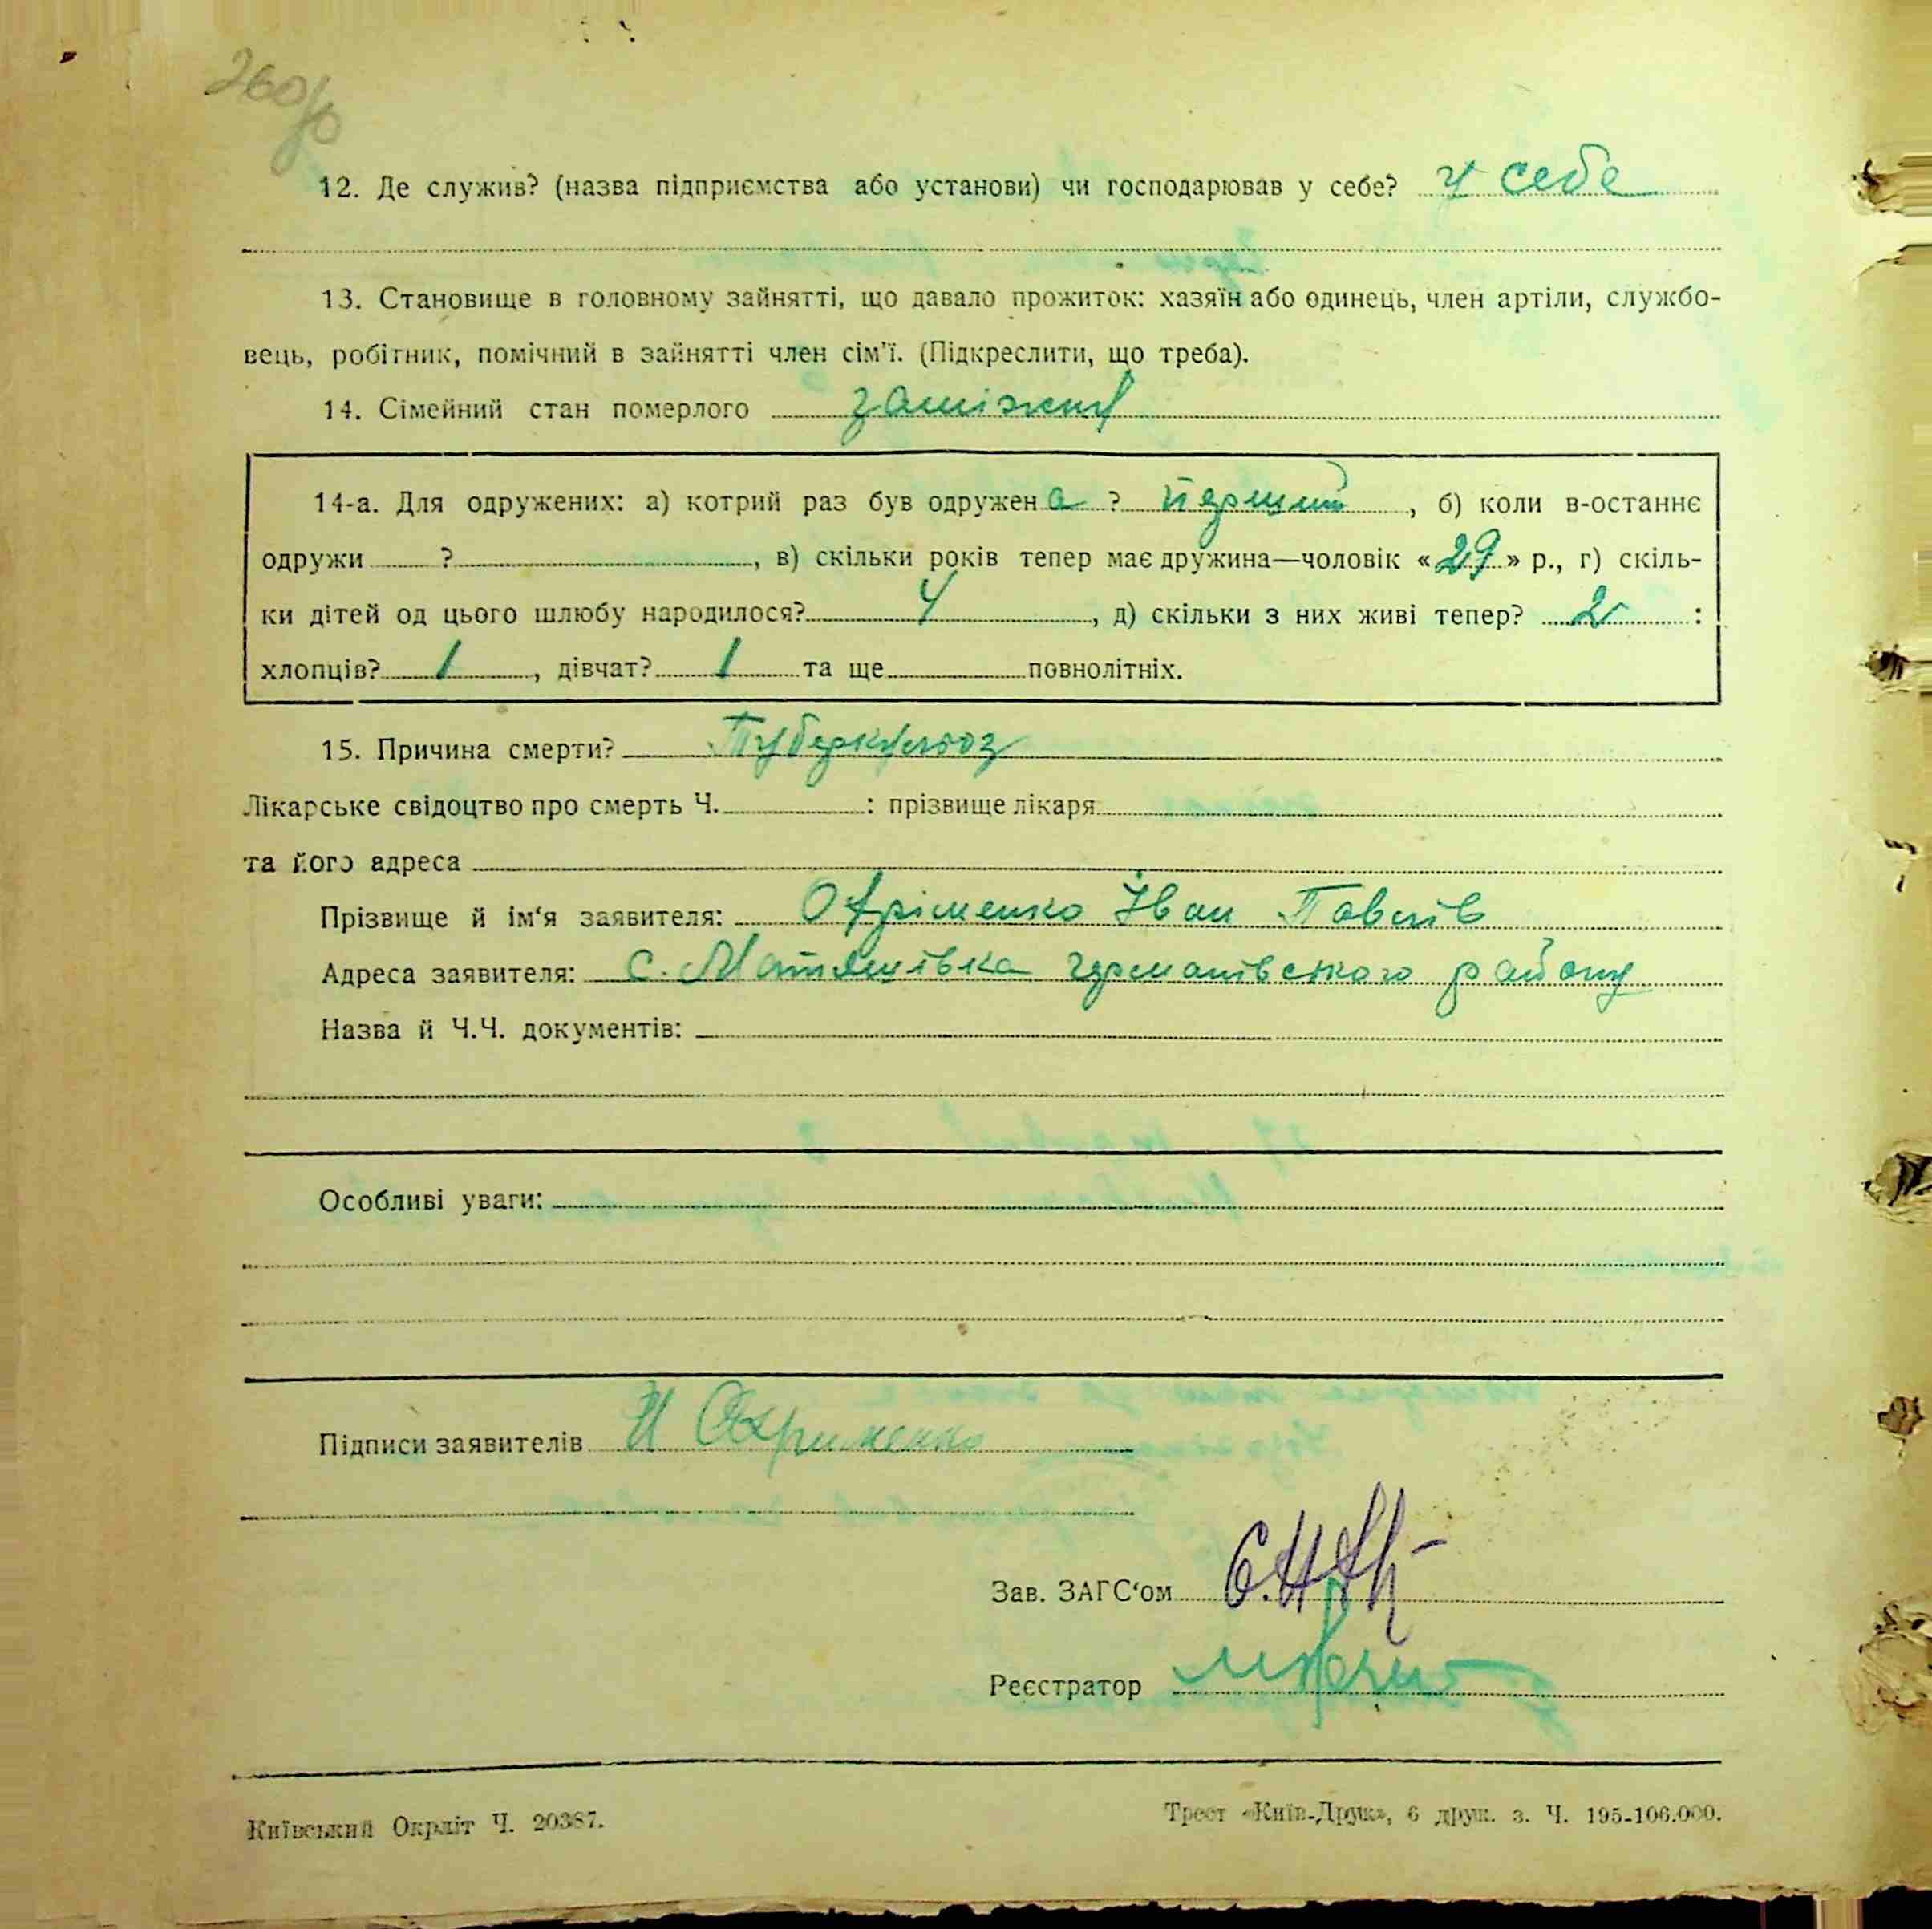 260/0
12. Де служив? (назва підприємства або установи) чи господарював у себе? у себе
13. Становище в головному зайнятті, що давало прожиток: хазяїн або одинець, член артіли, службо-
вець, робітник, помічний в зайнятті член сім'ї. (Підкреслити, що треба).
14. Сімейний стан померлого заміжня
14-а. Для одружених: а) котрий раз був одружен а ? перший, б) коли в-останнє
одружи ? , в) скільки років тепер має дружина—чоловік «29» р., г) скіль-
ки дітей од цього шлюбу народилося? 4, д) скільки з них живі тепер? 2 :
хлопців? 1, дівчат? 1 та ще повнолітніх.
15. Причина смерти? Туберкульоз
Лікарське свідоцтво про смерть Ч. : прізвище лікаря
та його адреса
Прізвище й ім'я заявителя: Охріменко Іван Павлів
Адреса заявителя: с. Матяшівка германівського району
Назва й Ч.Ч. документів:
Особливі уваги:
Підписи заявителів И Охрименко
Зав. ЗАГС'ом
Реєстратор
Київський Окрліт Ч. 20387.
Трест «Київ-Друк», 6 друк. з. Ч. 195-106.000.